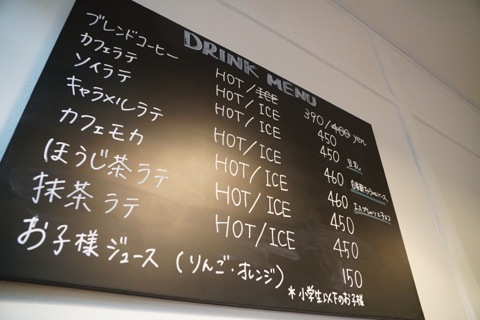 DRINK MENU
ブレンドコーヒー HOT/ICE 390/400 yen
カフェラテ HOT/ICE 450
ソイラテ HOT/ICE 450 豆乳
キャラメルラテ HOT/ICE 460
カフェモカ HOT/ICE 460
ほうじ茶ラテ HOT/ICE 450
抹茶ラテ HOT/ICE 450
お子様ジュース (りんご・オレンジ) 150
*小学生以下のお子様